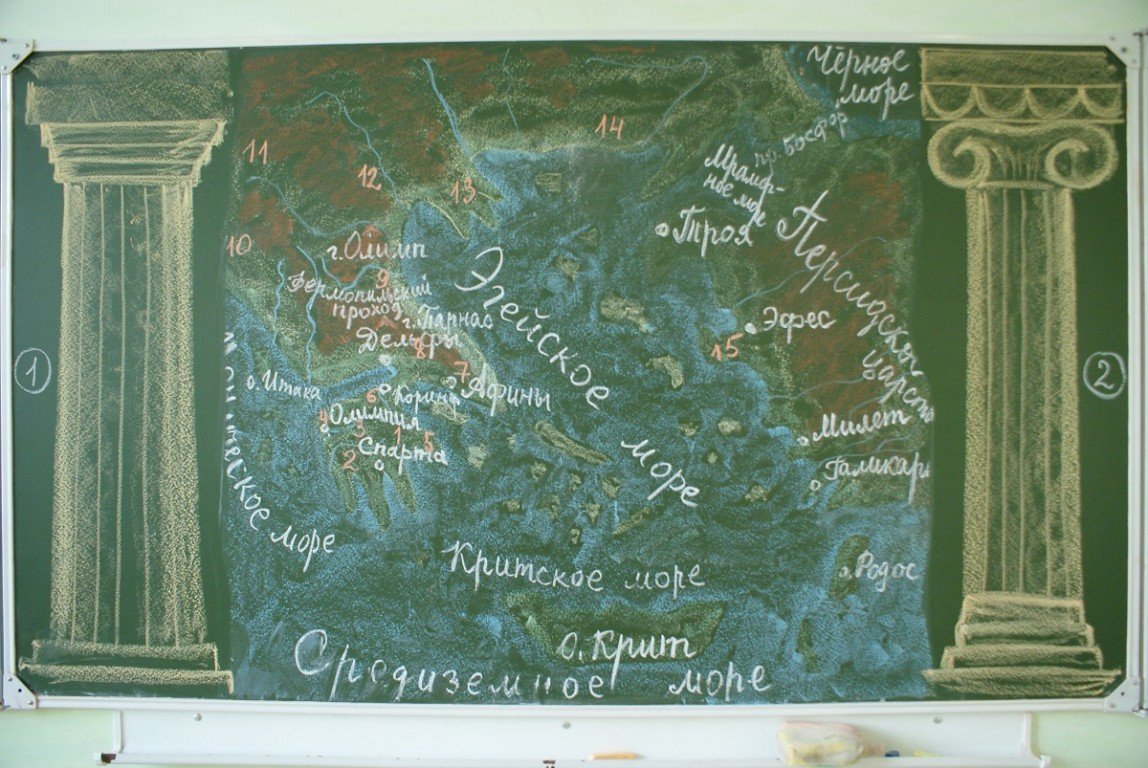 Чёрное
море
пр. Босфор
14
Мрамор-
ное море
11
12
13
Троя
Персидское
царство
10
г. Олимп
9
Фермопильский
проход
г. Парнас
Дельфы
8
Эгейское
море
Эфес
15
7
Афины
1
2
о. Итака
6
Коринф
4
Олимпия
3
1
5
Спарта
2
Милет
Галикар
море
Критское море
о. Родос
о. Крит
Средиземное море